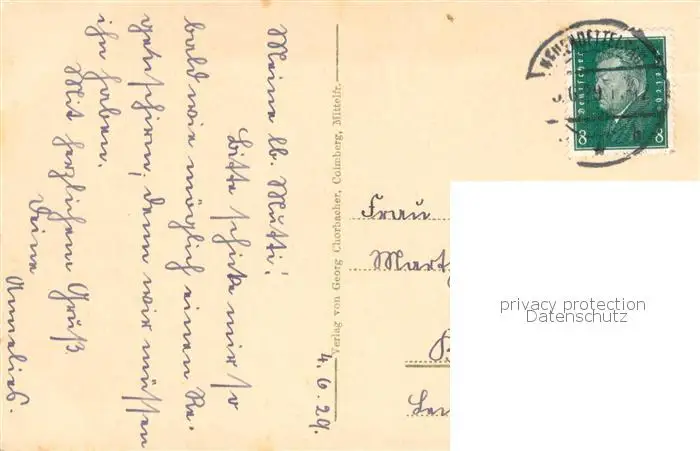 Meine lb. Mutti!
Bitte schicke mir so
bald wie möglich einen Re-
genschirm, denn wir müssen
ihn haben.
Mit herzlichem Gruß
Deine
Annelies.
4.6.29.
Verlag von Georg Chorbacher, Colmberg, Mittelfr.
Frau
Deutsches Reich
8 8
privacy protection
Datenschutz